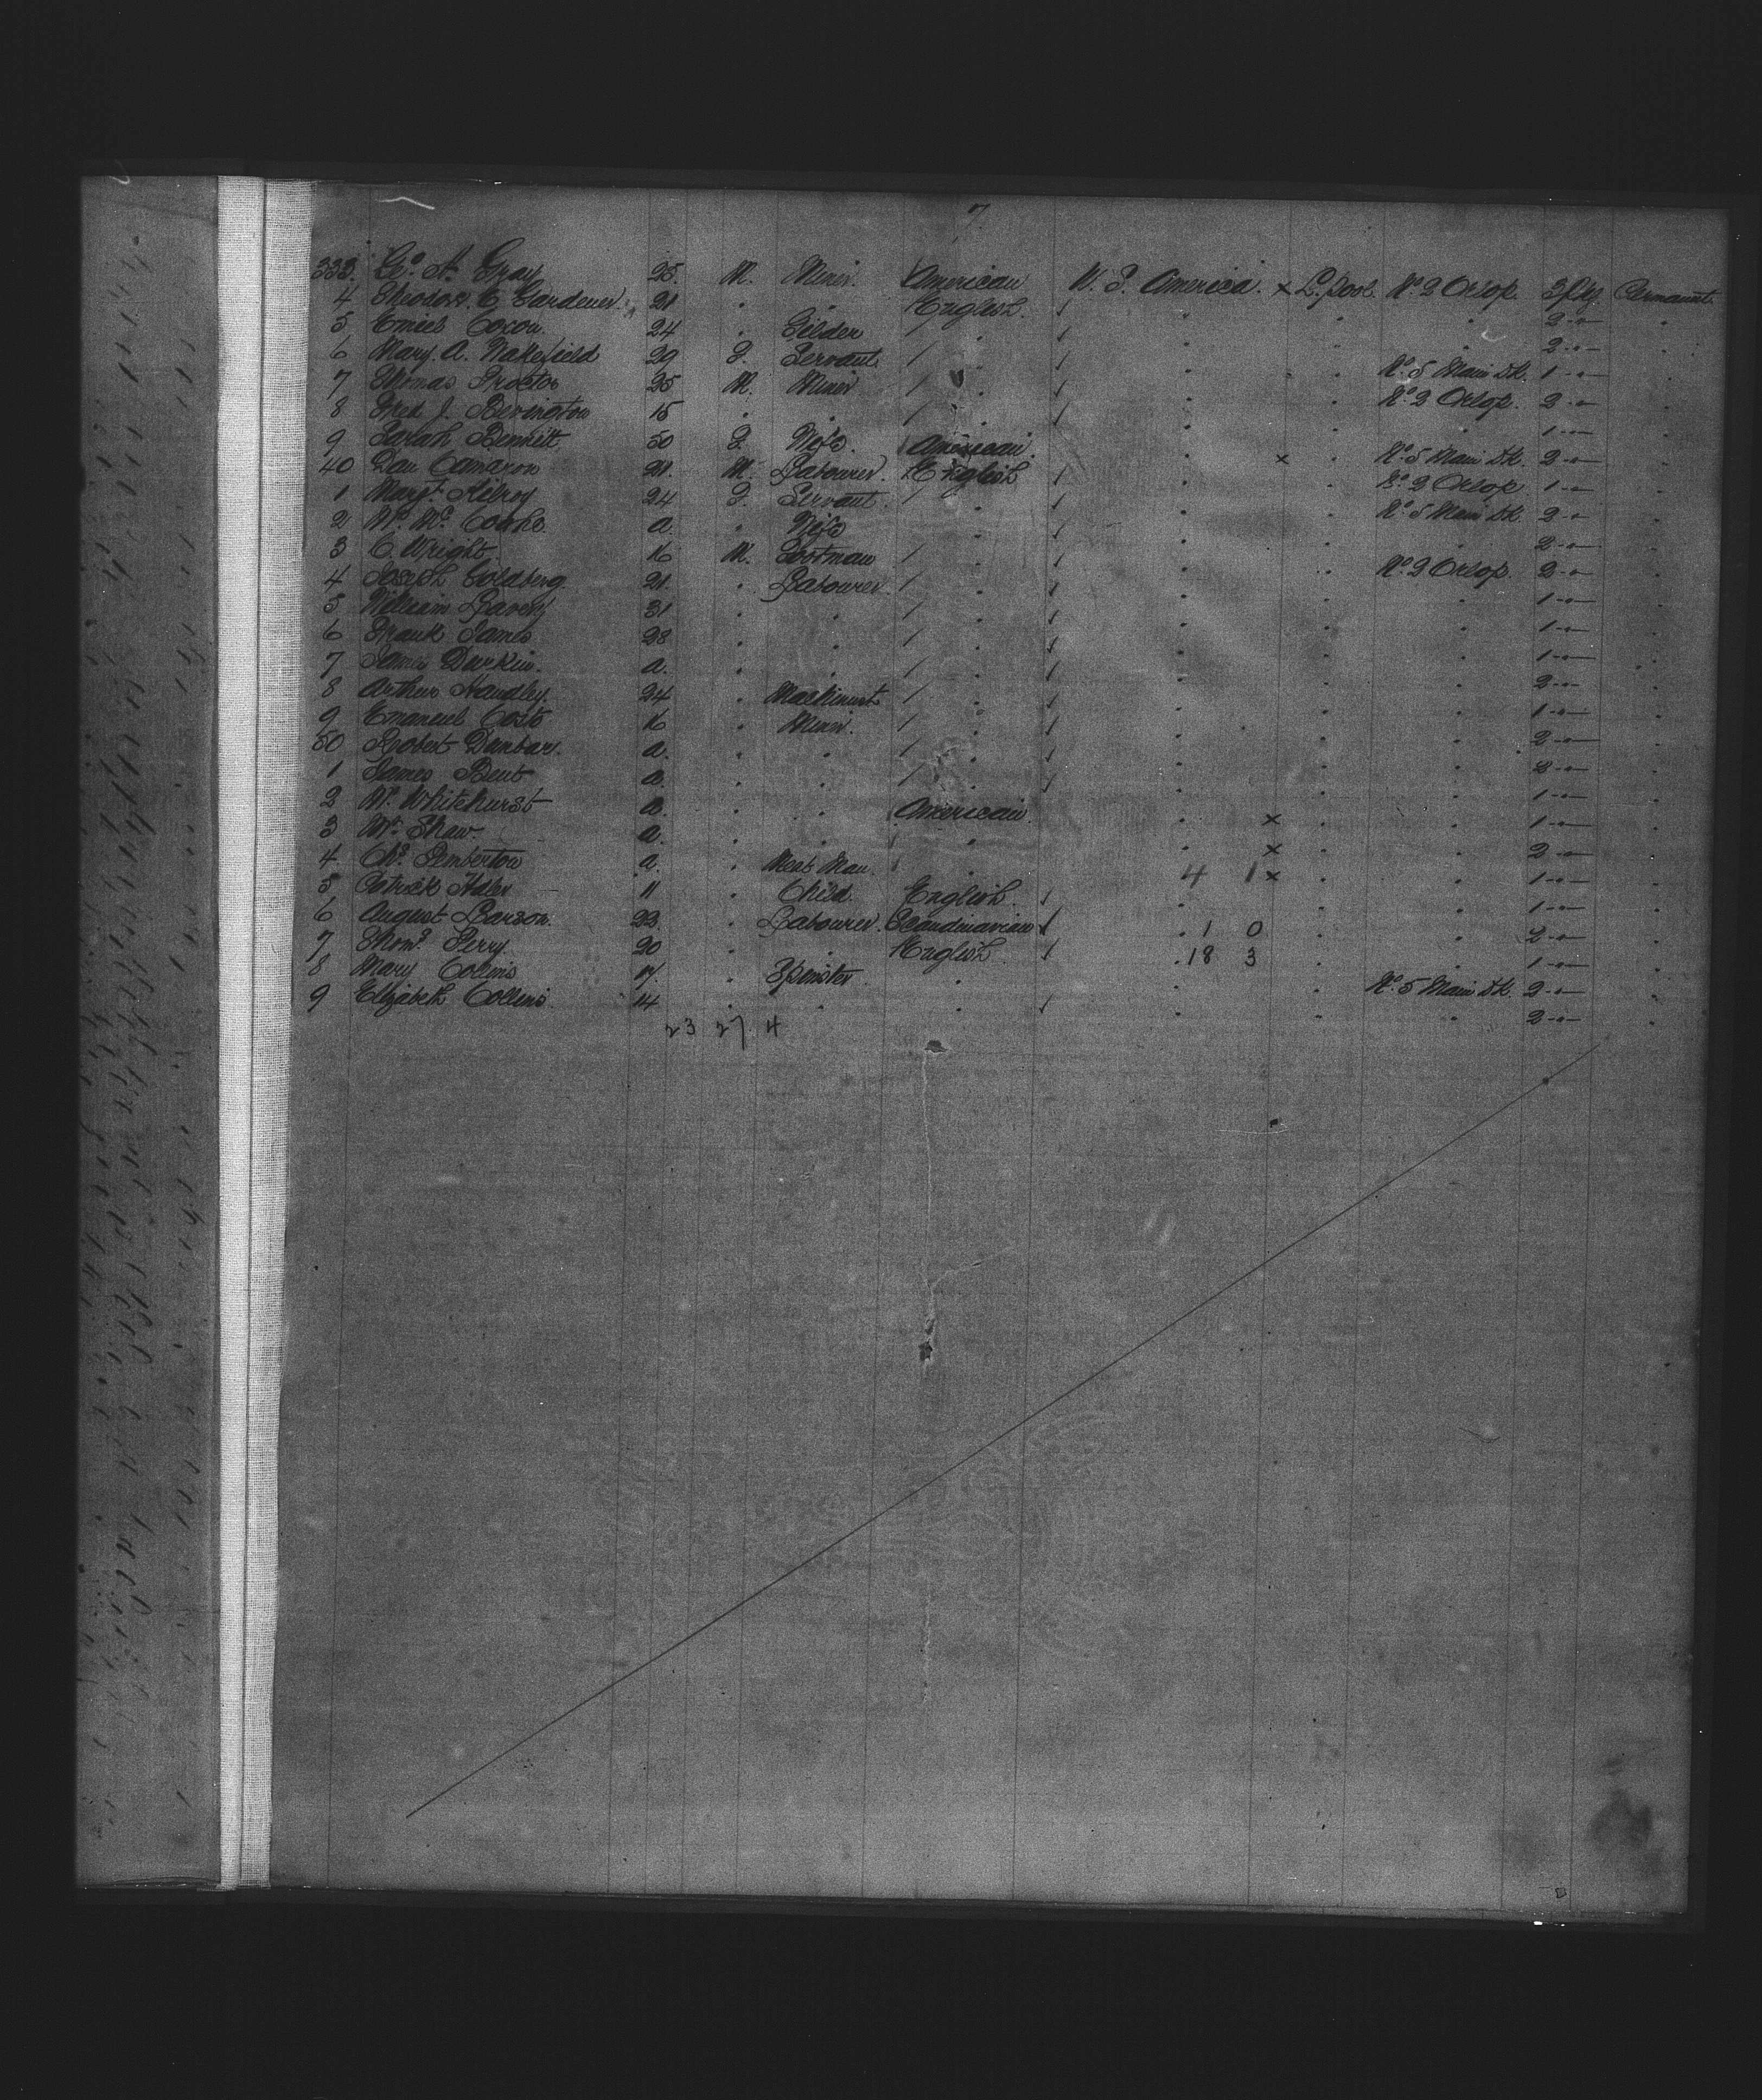 7
333. Geo. A. Gray 25. M. Miner. American U. S. America. x L. pool. No. 2 Orlop. 3 pkg. Permanent.
4 Theodore C. Gardener. 21 " " English. / " " " 2 -"- "
5 Emiel Cocou. 24 " Gilder / " / " " " 2 -"- "
6 Mary. A. Wakefield 29 F. Servant / " / " " No. 5 Main Dk. 1 -"- "
7 Thomas Proctor 25 M. Miner / " / " " No. 2 Orlop. 2 -"- "
8 Fred J. Bevington 15 " " / " / " " " 1 -"- "
9 Sarah Bennett 50 F. Wife American. " x " No. 5 Main Dk. 2 -"- "
40 Dan Camaron 21. M. Labourer. English / " " No. 2 Orlop 1 -"- "
1 Margt. Kilroy 24 F. Servant. / " / " " No. 5 Main Dk. 2 -"- "
2 a. " Wife " / " " " 2 -"- "
3 C. Wright. 16 M. Footman / " / " " No. 2 Orlop. 2 -"- "
4 Joseph Goldberg. 21. " Labourer. / " / " " " 1 -"- "
5 William Lavery 31 " " / " / " " " 1 -"- "
6 Frank James 28 " " / " / " " " 1 -"- "
7 James Durkin. a. " " / " / " " " 2 -"- "
8 Arthur Handley 24 " Machinist / " / " " " 1 -"- "
9 Emanuel Costs 16 " Miner. / " / " " " 2 -"- "
50 Robert Dunbar. a. " " / " / " " " 2 -"- "
1 James Bent a. " " / " / " " " 1 -"- "
2 W. Whitehurst a. " " American. " x " " 1 -"- "
3 Wm. Shaw. a. " " " " x " " 2 -"- "
4 Chs. Pemberton a. " Meat Man. " 4 1 x " " 1 -"- "
5 Patrick 11 " Child. English. / " " " 1 -"- "
6 August Larson. 22. " Labourer. Scandinavian / " 1 0 " " 2 -"- "
7 Thoms. Perry. 20 " " English / " 18 3 " " 1 -"- "
8 Mary Collins 17. " Spinster. " " " No. 5 Main Dk. 2 -"- "
9 Elizabeth Collins. 14 " " " / " " " 2 -"- "
23 27 4